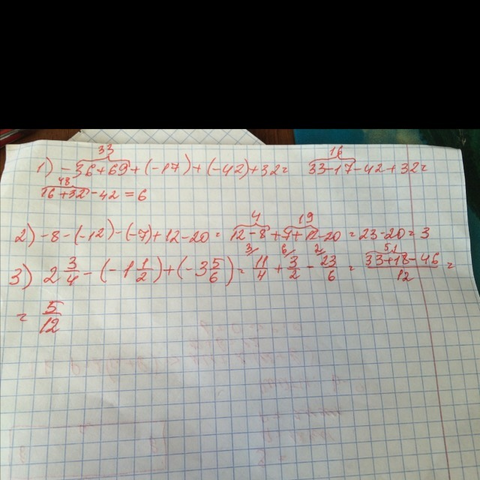 33 16
1) -36+69+(-17)+(-42)+32= 33-17-42+32=
48
16+32-42=6
4 19
2) -8-(-12)-(-7)+12-20=12-8+7+12-20=23-20=3
3/ 6/ 2/ 51
3) 2 3/4-(-1 1/2)+(-3 5/6)=11/4+3/2-23/6=33+18-46/12=
= 5/12